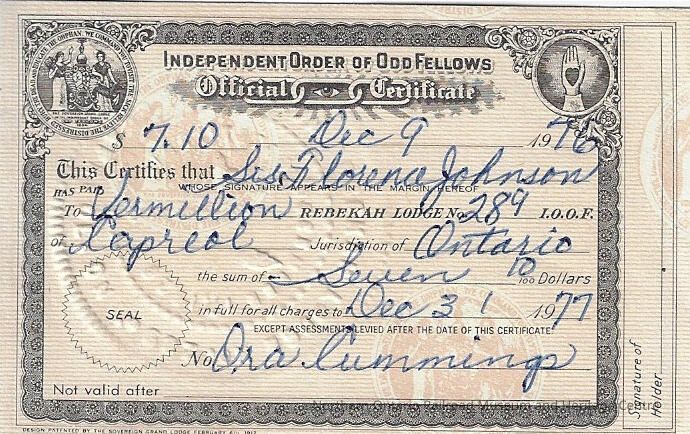 INDEPENDENT ORDER OF ODD FELLOWS
Official Certificate
$ 7.10 Dec 9 1976
This Certifies that Sis. Florence Johnson
WHOSE SIGNATURE APPEARS IN THE MARGIN HEREOF
HAS PAID
To Vermillion REBEKAH LODGE No. 289 I.O.O.F.
of Capreol Jurisdiction of Ontario
the sum of Seven 10/100 Dollars
in full for all charges to Dec 31 1977
EXCEPT ASSESSMENTS LEVIED AFTER THE DATE OF THIS CERTIFICATE
SEAL
No. Ora Cummings
Not valid after
Signature of Holder
DESIGN PATENTED BY THE SOVEREIGN GRAND LODGE FEBRUARY 6th, 1917